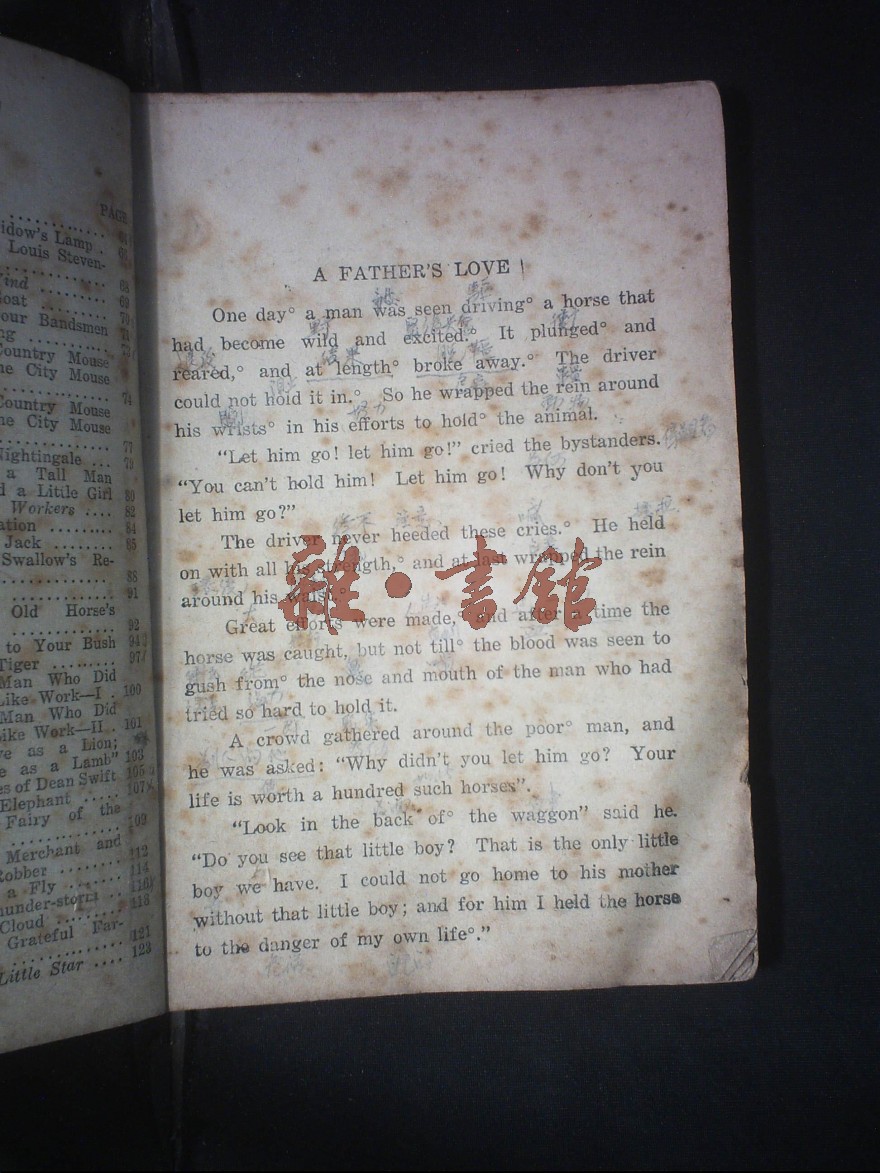 PAGE
idow's Lamp
Louis Steven-
ind ......... 68
oat ......... 69
our Bandsmen
Country Mouse
ne City Mouse
74
Country Mouse
ne City Mouse
77
Nightingale ... 79
a Tall Man
d a Little Girl 80
Workers .... 82
ation ......... 84
Jack ........ 85
Swallow's Re-
88
91
Old Horse's
92
to Your Bush 94
Tiger ......... 97
Man Who Did
Like Work—I . 100
Man Who Did
Like Work—II . 101
ve as a Lion;
e as a Lamb" 103
es of Dean Swift 105
Elephant ..... 107
Fairy of the
109
Merchant and
Robber ........ 112
a Fly ........ 114
hunder-storm .. 116
Cloud ......... 118
Grateful Far-
121
Little Star .... 123
A FATHER'S LOVE
One day° a man was seen driving° a horse that
had become wild and excited.° It plunged° and
reared,° and at length° broke away.° The driver
could not hold it in.° So he wrapped the rein around
his wrists° in his efforts to hold° the animal.
"Let him go! let him go!" cried the bystanders.
"You can't hold him! Let him go! Why don't you
let him go?"
The driver never heeded these cries.° He held
on with all his strength,° and at last wrapped the rein
around his waist.°
Great efforts were made,° and after a time the
horse was caught, but not till° the blood was seen to
gush from° the nose and mouth of the man who had
tried so hard to hold it.
A crowd gathered around the poor° man, and
he was asked: "Why didn't you let him go? Your
life is worth a hundred such horses".
"Look in the back of° the waggon" said he.
"Do you see that little boy? That is the only little
boy we have. I could not go home to his mother
without that little boy; and for him I held the horse
to the danger of my own life°."
雜·書館